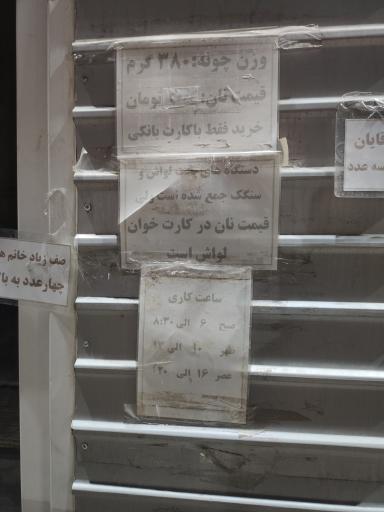 وزن چونه: ۳۸۰ گرم
قیمت نان: تومان
خرید فقط باکارت بانکی
دستگاه های پخت لواش و
سنگک جمع شده است ولی
قیمت نان در کارت خوان
لواش است
ساعت کاری
صبح ۶ الی ۸:۳۰
ظهر ۱۰ الی ۱۳
عصر ۱۶ الی ۲۰
صف زیاد خانم ها
چهارعدد به با
قایان
سه عدد